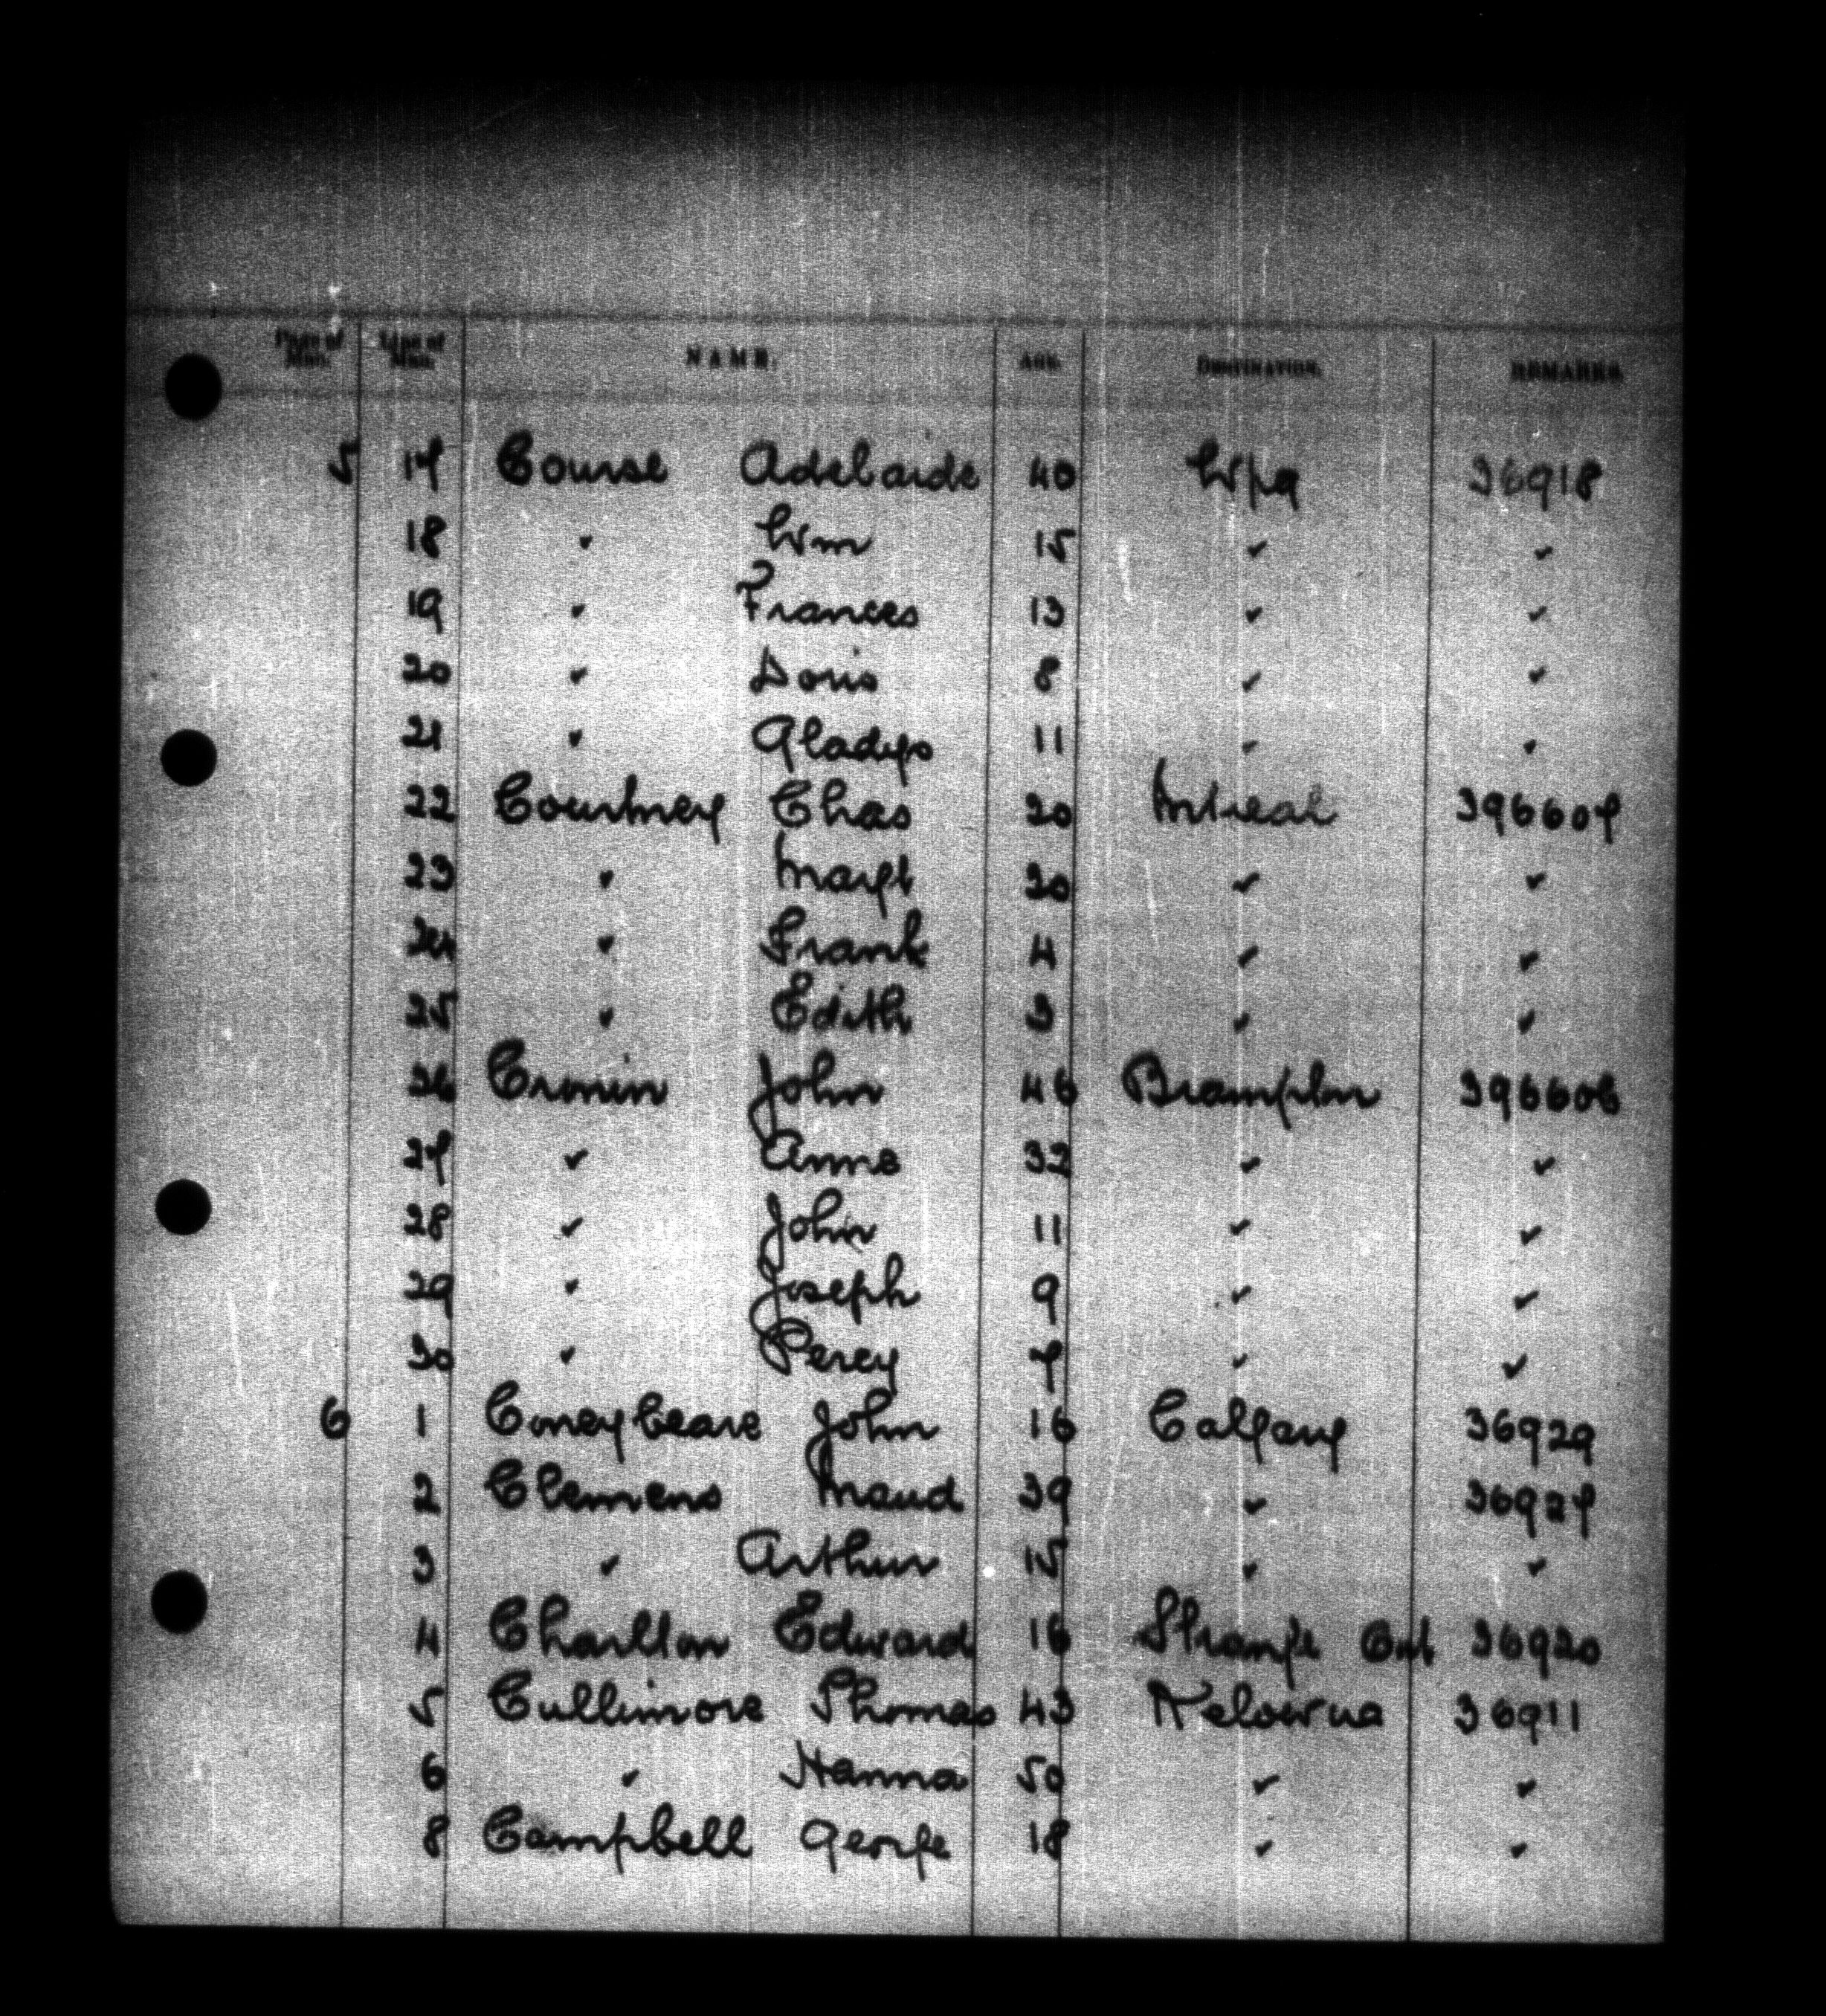 Page of Man. Line of Man. NAME. AGE. DESTINATION. REMARKS
5 17 Course Adelaide 40 Wpg 36918
18 " Wm 15 " "
19 " Frances 13 " "
20 " Doris 8 " "
21 " Gladys 11 " "
22 Courtney Chas 30 Mtreal 396607
23 " Margt 30 " "
24 " Frank 4 " "
25 " Edith 3 " "
26 Cronin John 46 Brampton 396606
27 " Anne 32 " "
28 " John 11 " "
29 " Joseph 9 " "
30 " Percy 7 " "
6 1 Coneybeare John 16 Calgary 36929
2 Clemens Maud 39 " 36927
3 " Arthur 15 " "
4 Charlton Edward 16 Ont 36920
5 Cullimore Thomas 43 Kelowna 36911
6 " Hanna 50 " "
8 Campbell George 18 " "